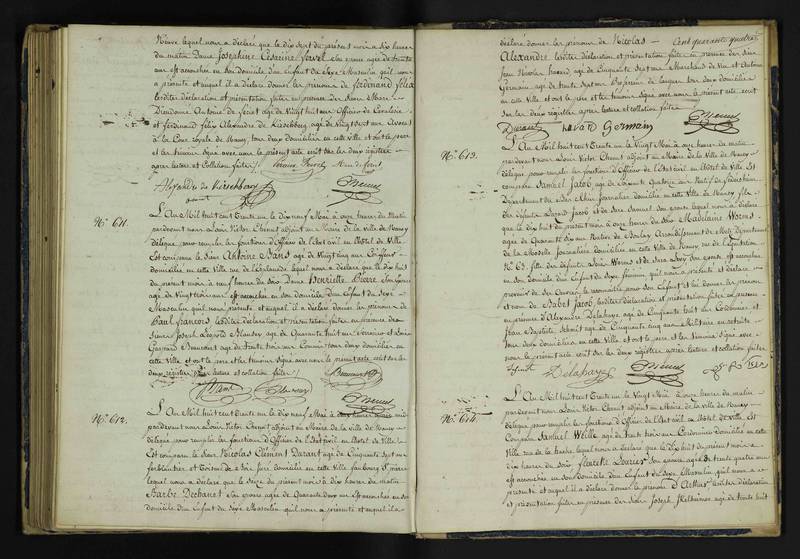 Neuve lequel nous a déclaré que le dix sept du présent mois à dix heures
du matin Dame Joséphine Césarine fervel son épouse agée de trente
ans est accouchée en son domicile d'un Enfant du Sexe Masculin qu'il nous
a présenté et auquel il a déclaré donner les prénoms de ferdinand félix
lesdites déclaration et présentation faites en présence des Sieurs Marie
Dieudonné Antoine de forest agé de Vingt huit ans Officier de Cavalerie
et ferdinand félix Alexandre de Kirschberg, agé de Vingt sept ans Avocat
à la Cour royale de Nancy, tous deux domiciliés en cette ville et ont le père
et les témoins signé avec nous le présent acte écrit sur les deux registres
après lecture et Collation faites
Alexandre de Kirschberg
avocat
Chenut
N.° 611.
L'An Mil huit cent Trente un le dix neuf Mai à onze heures du Matin
pardevant nous Louis Victor Chenut adjoint au Maire de la Ville de Nancy
délégué pour remplir les fonctions d'Officier de l'Etat civil en l'hôtel de Ville
Est comparu le Sieur Antoine Hans agé de Vingt cinq ans Coiffeur
domicilié en cette Ville rue de l'Esplanade lequel nous a déclaré que le dix huit
du présent mois à neuf heures du soir Dame Henriette Pierre son épouse
agée de Vingt trois ans est accouchée en son domicile d'un Enfant du Sexe
Masculin qu'il nous a présenté et auquel il a déclaré donner les prénoms de
Paul françois lesdites déclaration et présentation faites en présence des
Sieurs Joseph Léopold agé de Quarante huit ans Serrurier et Louis
Gaspard Beaucourt agé de trente trois ans Commis tous deux domiciliés en
cette Ville et ont le père et les témoins signé avec nous le présent acte écrit sur les
deux registres après lecture et collation faites
Hans
Chenut
N.° 612.
L'An Mil huit cent Trente un le dix neuf Mai à midi
pardevant nous Louis Victor Chenut adjoint au Maire de la Ville de Nancy
délégué pour remplir les fonctions d'Officier de l'Etat civil en l'hôtel de Ville
Est comparu le Sieur Nicolas Clément Durant agé de Cinquante Sept ans
ferblantier et Tourneur domicilié en cette Ville faubourg S.t pierre
lequel nous a déclaré que le seize du présent mois à dix heures du matin
Barbe Dechanet son épouse agée de Quarante deux ans est accouchée en son
domicile d'un Enfant du Sexe Masculin qu'il nous a présenté et auquel il a
déclaré donner les prénoms de Nicolas Cent quarante quatre
Alexandre lesdites déclaration et présentation faites en présence des Sieurs
Jean Nicolas agé de Cinquante Sept ans Marchand de Vin et Antoine
Germain agé de trente sept ans Professeur de langues tous deux domiciliés
en cette Ville et ont le père et les témoins signé avec nous le présent acte écrit
sur les deux registres après lecture et collation faites
Durant Germain Chenut
N.° 613.
L'An Mil huit cent Trente un le Vingt Mai à onze heures du matin
pardevant nous Louis Victor Chenut adjoint au Maire de la Ville de Nancy
délégué pour remplir les fonctions d'Officier de l'Etat civil en l'hôtel de Ville Est
comparu Samuel Jacob agé de Soixante Quatorze ans Natif de
Département du Bas Rhin Journalier domicilié en cette Ville de Nancy fils
des défunts Isaac Jacob et de Sara Samuel son épouse lequel nous a déclaré
que le dix huit du présent mois à onze heures du Soir Madeleine Worms
agée de Quarante Six ans Native de Boulay Arrondissement de Metz Département
de la Moselle Journalière domiciliée en cette Ville de Nancy rue de l'Equitation
N.° 63. fille des défunts Worms et de Sara son épouse, est accouchée
en son domicile d'un Enfant du Sexe féminin qu'il nous a présenté et déclaré
provenir de Ses Œuvres, le reconnaître pour son Enfant et lui donner les prénom
et nom de Babet Jacob, lesdites déclaration et présentation faites en présence
en présence d'Alexandre Delahaye agé de Cinquante huit ans Cordonnier et
Jean Baptiste Schmitt agé de Cinquante cinq ans Militaire en retraite
tous deux domiciliés en cette Ville, et ont le père et les témoins Signé avec
nous le présent acte écrit sur les deux registres après lecture et collation faites
Schmitt Delahaye Chenut
N.° 614.
L'An Mil huit cent Trente un le Vingt Mai à onze heures du matin
pardevant nous Louis Victor Chenut adjoint au Maire de la Ville de Nancy
délégué pour remplir les fonctions d'Officier de l'Etat civil en l'hôtel de Ville Est
Comparu Samuel Weille agé de trente trois ans Cordonnier domicilié en cette
Ville rue de la hache lequel nous a déclaré que le dix huit du présent mois à
dix heures du Soir son épouse agée de trente quatre ans
est accouchée en son domicile d'un Enfant du Sexe Masculin qu'il nous a
présenté et auquel il a déclaré donner le prénom d'Arthur lesdites déclaration
et présentation faites en présence des Sieurs Joseph agé de trente huit